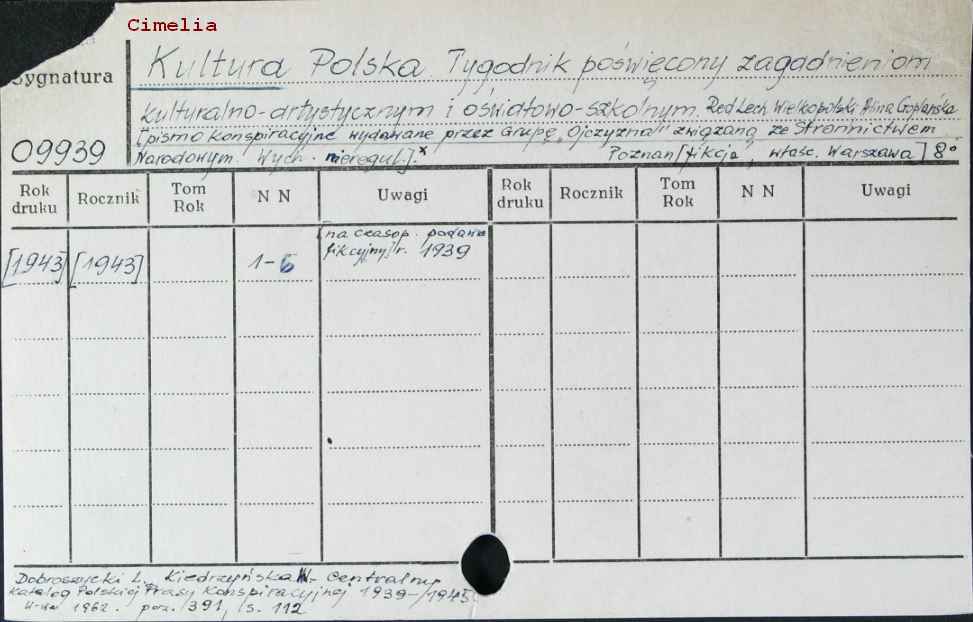 Cimelia
Sygnatura
Kultura Polska. Tygodnik poświęcony zagadnieniom
kulturalno-artystycznym i oświatowo-szkolnym. Red Lech Wielkopolski, Alina Goplańska
[pismo konspiracyjne wydawane przez Grupę „Ojczyzna" związaną ze Stronnictwem
09939
Narodowym. Wych. nieregul.].x Poznań [fikcja, właśc. Warszawa] 8°
Rok druku Rocznik Tom Rok N N Uwagi Rok druku Rocznik Tom Rok N N Uwagi
[na czasop. podano
[1943] [1943] 1-6 fikcyjny] r. 1939
Dobroszycki L., Kiedrzyńska W. - Centralny
Katalog Polskiej Prasy Konspiracyjnej 1939-1945
W-wa 1962. poz. 391, s. 112